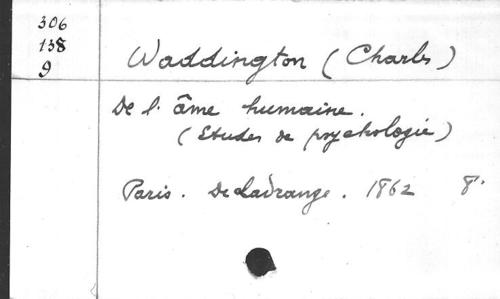 306
138
9
Waddington (Charles)
De l'âme humaine.
(Etudes de psychologie)
Paris. De Ladrange. 1862 8°